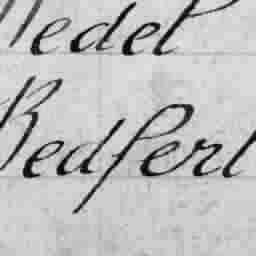 Nedel
Bedferl